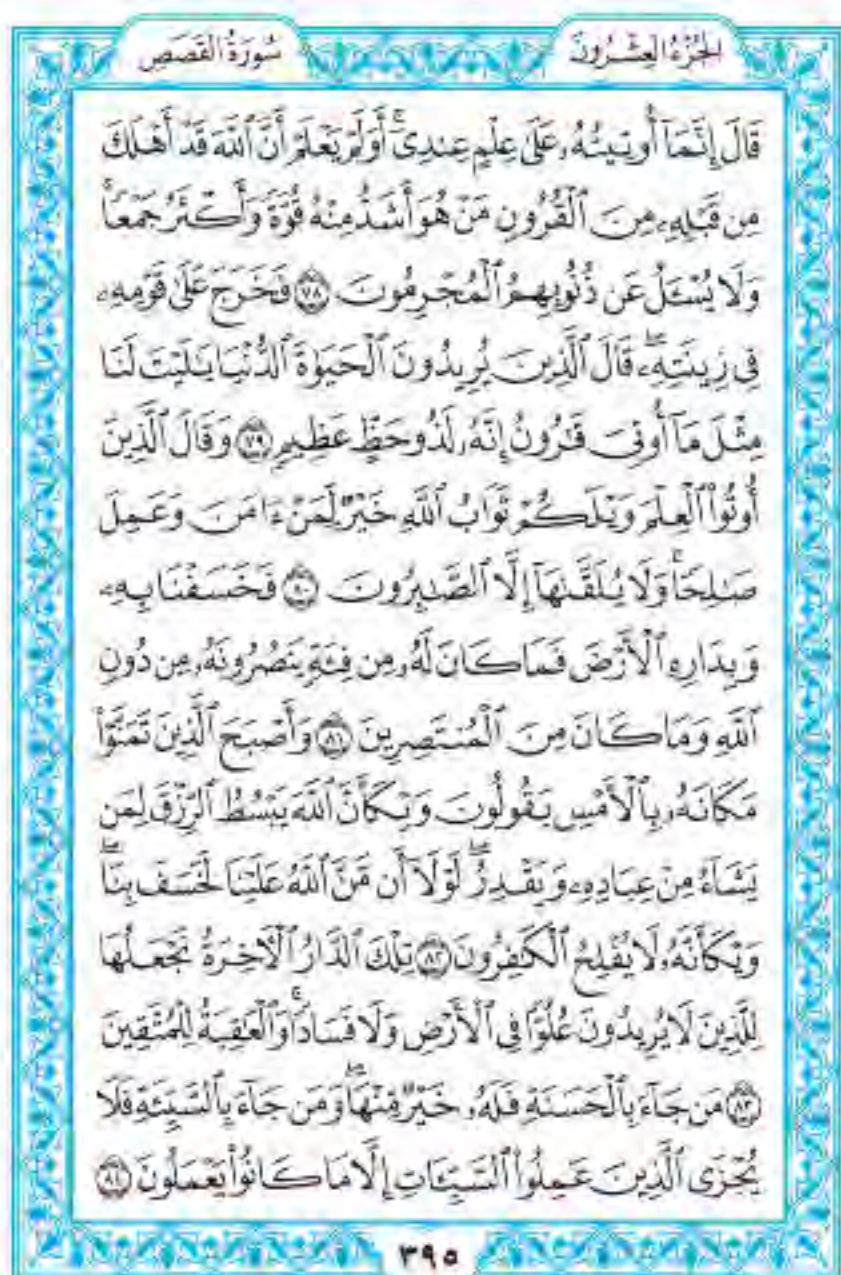 الجُزْءُ العِشْرُونَ
سُورَةُ القَصَصِ
قَالَ إِنَّمَآ أُوتِيتُهُۥ عَلَىٰ عِلْمٍ عِندِىٓ ۚ أَوَلَمْ يَعْلَمْ أَنَّ ٱللَّهَ قَدْ أَهْلَكَ
مِن قَبْلِهِۦ مِنَ ٱلْقُرُونِ مَنْ هُوَ أَشَدُّ مِنْهُ قُوَّةً وَأَكْثَرُ جَمْعًا ۚ
وَلَا يُسْـَٔلُ عَن ذُنُوبِهِمُ ٱلْمُجْرِمُونَ ۝٧٨ فَخَرَجَ عَلَىٰ قَوْمِهِۦ
فِى زِينَتِهِۦ ۖ قَالَ ٱلَّذِينَ يُرِيدُونَ ٱلْحَيَوٰةَ ٱلدُّنْيَا يَـٰلَيْتَ لَنَا
مِثْلَ مَآ أُوتِىَ قَـٰرُونُ إِنَّهُۥ لَذُو حَظٍّ عَظِيمٍ ۝٧٩ وَقَالَ ٱلَّذِينَ
أُوتُوا۟ ٱلْعِلْمَ وَيْلَكُمْ ثَوَابُ ٱللَّهِ خَيْرٌ لِّمَنْ ءَامَنَ وَعَمِلَ
صَـٰلِحًا ۚ وَلَا يُلَقَّىٰهَآ إِلَّا ٱلصَّـٰبِرُونَ ۝٨٠ فَخَسَفْنَا بِهِۦ
وَبِدَارِهِ ٱلْأَرْضَ فَمَا كَانَ لَهُۥ مِن فِئَةٍ يَنصُرُونَهُۥ مِن دُونِ
ٱللَّهِ وَمَا كَانَ مِنَ ٱلْمُنتَصِرِينَ ۝٨١ وَأَصْبَحَ ٱلَّذِينَ تَمَنَّوْا۟
مَكَانَهُۥ بِٱلْأَمْسِ يَقُولُونَ وَيْكَأَنَّ ٱللَّهَ يَبْسُطُ ٱلرِّزْقَ لِمَن
يَشَآءُ مِنْ عِبَادِهِۦ وَيَقْدِرُ ۖ لَوْلَآ أَن مَّنَّ ٱللَّهُ عَلَيْنَا لَخَسَفَ بِنَا ۖ
وَيْكَأَنَّهُۥ لَا يُفْلِحُ ٱلْكَـٰفِرُونَ ۝٨٢ تِلْكَ ٱلدَّارُ ٱلْـَٔاخِرَةُ نَجْعَلُهَا
لِلَّذِينَ لَا يُرِيدُونَ عُلُوًّا فِى ٱلْأَرْضِ وَلَا فَسَادًا ۚ وَٱلْعَـٰقِبَةُ لِلْمُتَّقِينَ
۝٨٣ مَن جَآءَ بِٱلْحَسَنَةِ فَلَهُۥ خَيْرٌ مِّنْهَا ۖ وَمَن جَآءَ بِٱلسَّيِّئَةِ فَلَا
يُجْزَى ٱلَّذِينَ عَمِلُوا۟ ٱلسَّيِّـَٔاتِ إِلَّا مَا كَانُوا۟ يَعْمَلُونَ ۝٨٤
٣٩٥